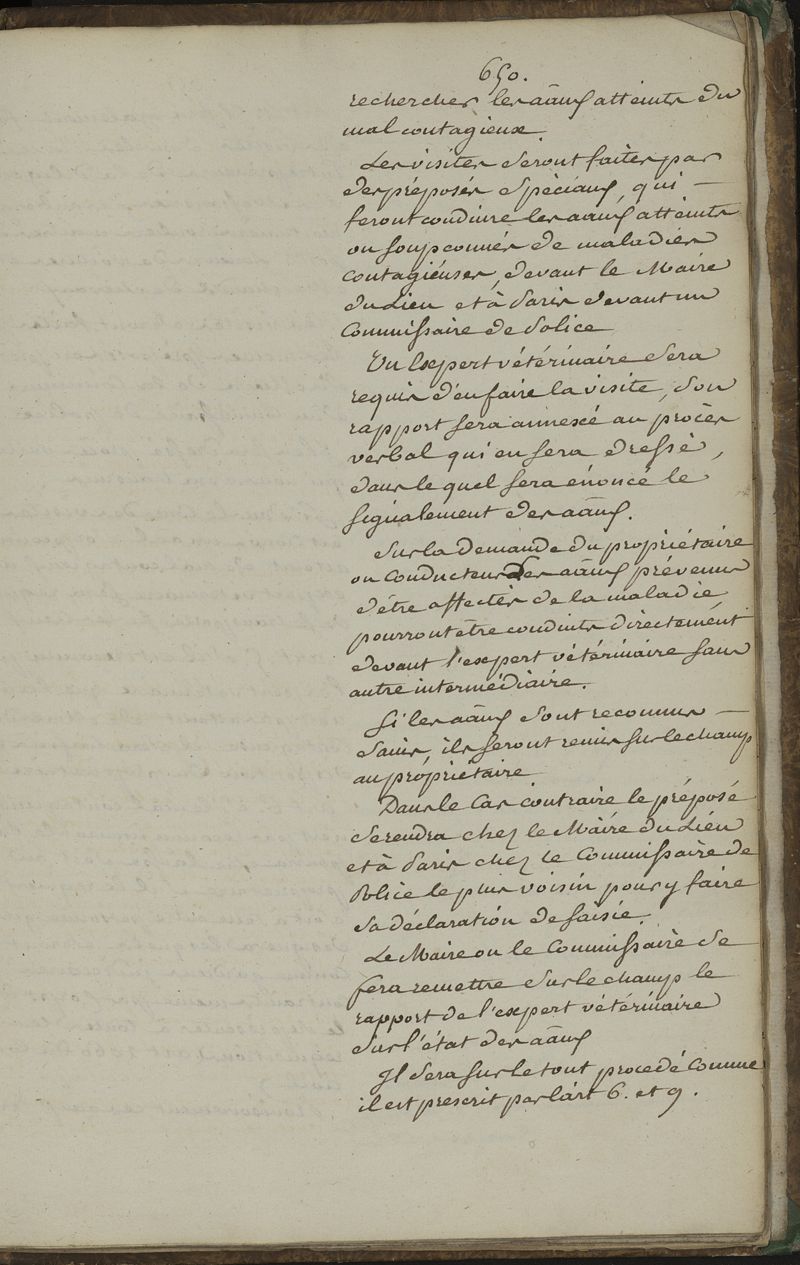 650.
rechercher les aãux atteints du
mal contagieux.
Les visites seront faites par
des préposés spéciaux, qui —
feront conduire les aãux atteints
ou soupçonnés de maladies
contagieuses, devant le Maire
du Lieu et à Paris devant un
Commissaire de Police
Un Expert vétérinaire sera
requis d'en faire la visite, son
rapport sera annexé au procès
verbal qui en sera dressé,
dans le quel sera énoncé le
signalement des aãux.
Sur la demande du propriétaire
ou conducteur des aãux prévenus
d'être affectés de la maladie,
pourront être conduits directement
devant l'expert vétérinaire sans
autre intermédiaire.
Si les aãux sont reconnus —
sains, ils seront remis sur le champ
au propriétaire
Dans le Cas contraire le préposé
se rendra chez le Maire du Lieu
et à Paris chez le Commissaire de
Police le plus voisin pour y faire
sa déclaration de saisie.
Le Maire ou le Commissaire se
fera remettre sur le champ le
rapport de l'expert vétérinaire
sur l'état des aãux
Il sera sur le tout procédé comme
il est prescrit par l'art 6. et 9.